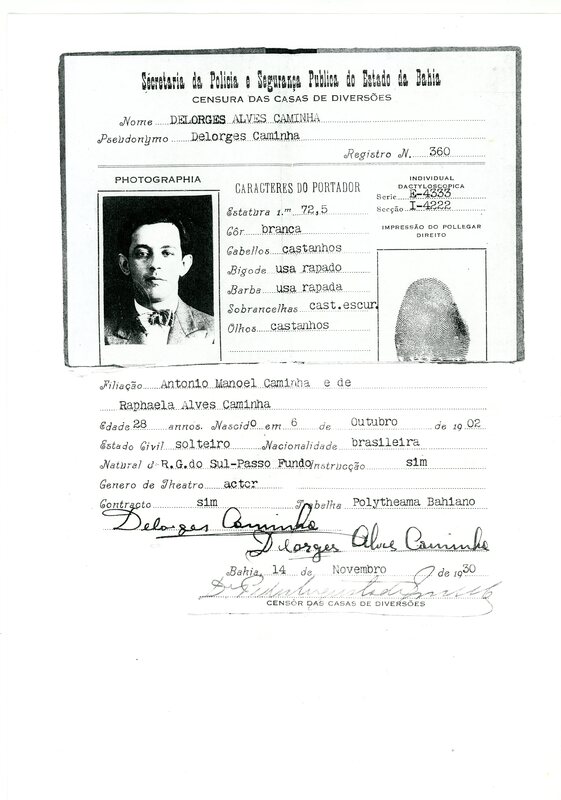 Secretaria da Policia e Segurança Publica do Estado da Bahia
CENSURA DAS CASAS DE DIVERSÕES
Nome DELORGES ALVES CAMINHA
Pseudonymo Delorges Caminha
Registro N. 360
PHOTOGRAPHIA
CARACTERES DO PORTADOR
Estatura 1.m 72,5
Côr branca
Cabellos castanhos
Bigode usa rapado
Barba usa rapada
Sobrancelhas cast.escur.
Olhos castanhos
INDIVIDUAL
DACTYLOSCOPICA
Serie E-4333
Secção I-4222
IMPRESSÃO DO POLLEGAR
DIREITO
Filiação Antonio Manoel Caminha e de
Raphaela Alves Caminha
Edade 28 annos. Nascido em 6 de Outubro de 1902
Estado Civil solteiro Nacionalidade brasileira
Natural d R.G.do Sul-Passo Fundo Instrucção sim
Genero de Theatro actor
Contracto sim Trabalha Polytheama Bahiano
Delorges Caminha
Delorges Alves Caminha
Bahia, 14 de Novembro de 1930
CENSOR DAS CASAS DE DIVERSÕES